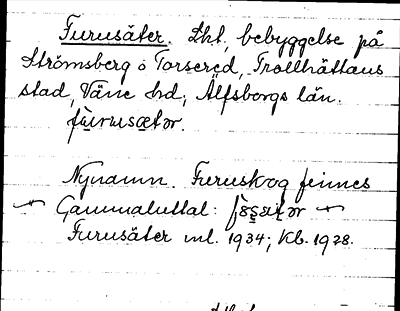 Furusäter. Lht, bebyggelse på
Strömsberg o Torsered, Trollhättans
stad, Väne hd, Älfsborgs län.
fu̇rusætər.
Nynamn. Furuskog finnes
Gammaluttal:
Furusäter ml. 1934; Kb. 1928.